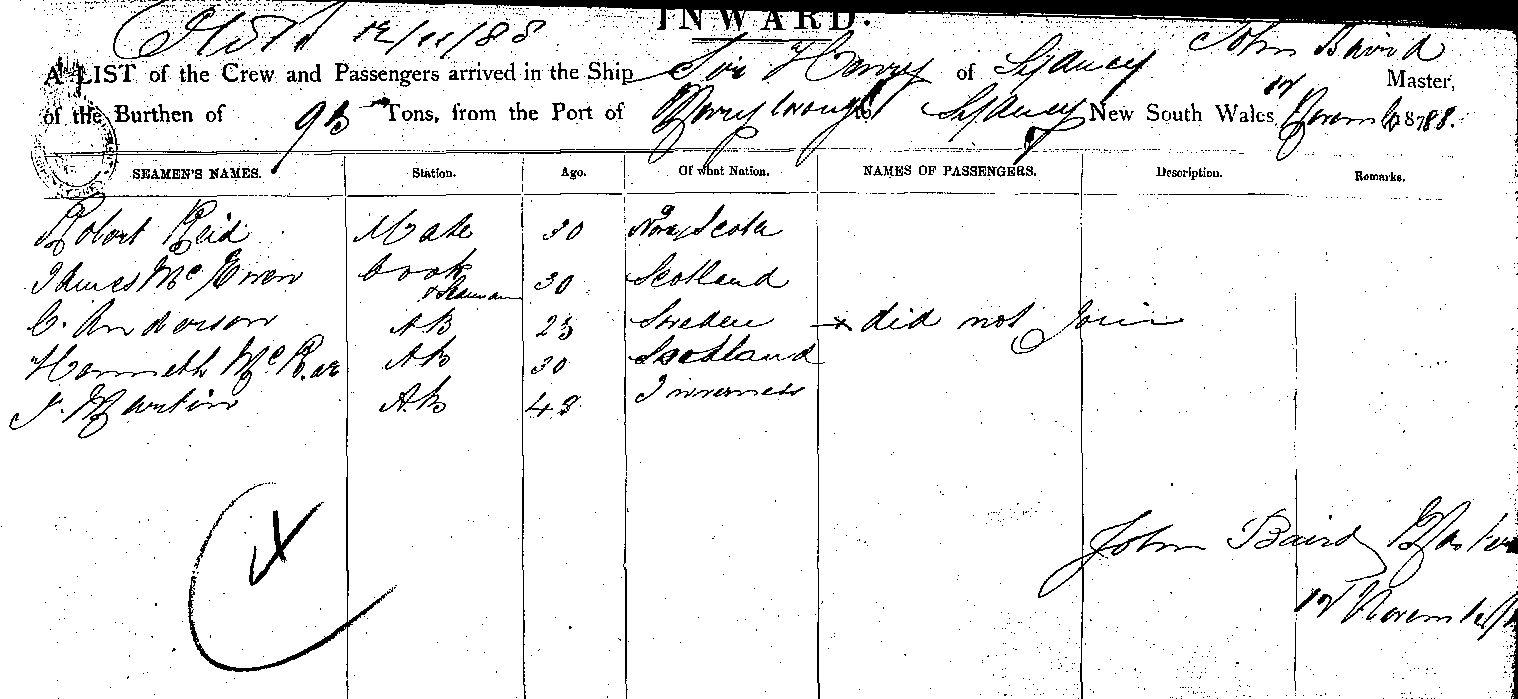 INWARD.
12/11/88
John Baird
A LIST of the Crew and Passengers arrived in the Ship Sir Henry of Sydney Master,
of the Burthen of 95 Tons, from the Port of to Sydney New South Wales, 12 November 1888.
SEAMEN'S NAMES. Station. Age. Of what Nation. NAMES OF PASSENGERS. Description. Remarks.
Robert Reid Mate 30 Nova Scotia
James McEwen Cook & Seaman 30 Scotland
C. Anderson AB 25 Sweden x did not join
Kenneth McRae AB 30 Scotland
J. Martin AB 48 Inverness
John Baird Master
12 November